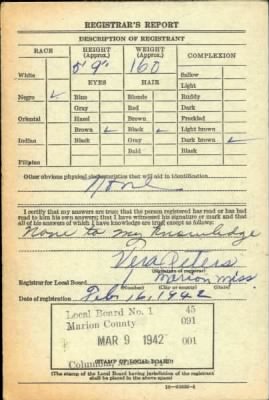 REGISTRAR'S REPORT
DESCRIPTION OF REGISTRANT
RACE HEIGHT (Approx.) WEIGHT (Approx.) COMPLEXION
White 5' 9" 160 Sallow
EYES HAIR Light
Negro ✓ Blue Blonde Ruddy
Gray Red Dark
Oriental Hazel Brown Freckled
Brown ✓ Black ✓ Light brown
Indian Black Gray Dark brown ✓
Bald Black
Filipino
Other obvious physical characteristics that will aid in identification
None
I certify that my answers are true; that the person registered has read or has had
read to him his own answers; that I have witnessed his signature or mark and that
all of his answers of which I have knowledge are true except as follows:
None to my Knowledge
Vera Peters
(Signature of registrar)
Registrar for Local Board Marion Miss.
(Number) (City or county) (State)
Date of registration Feb. 16, 1942
Local Board No. 1 45
Marion County 091
MAR 9 1942 001
(STAMP OF LOCAL BOARD)
(The stamp of the Local Board having jurisdiction of the registrant
shall be placed in the above space)